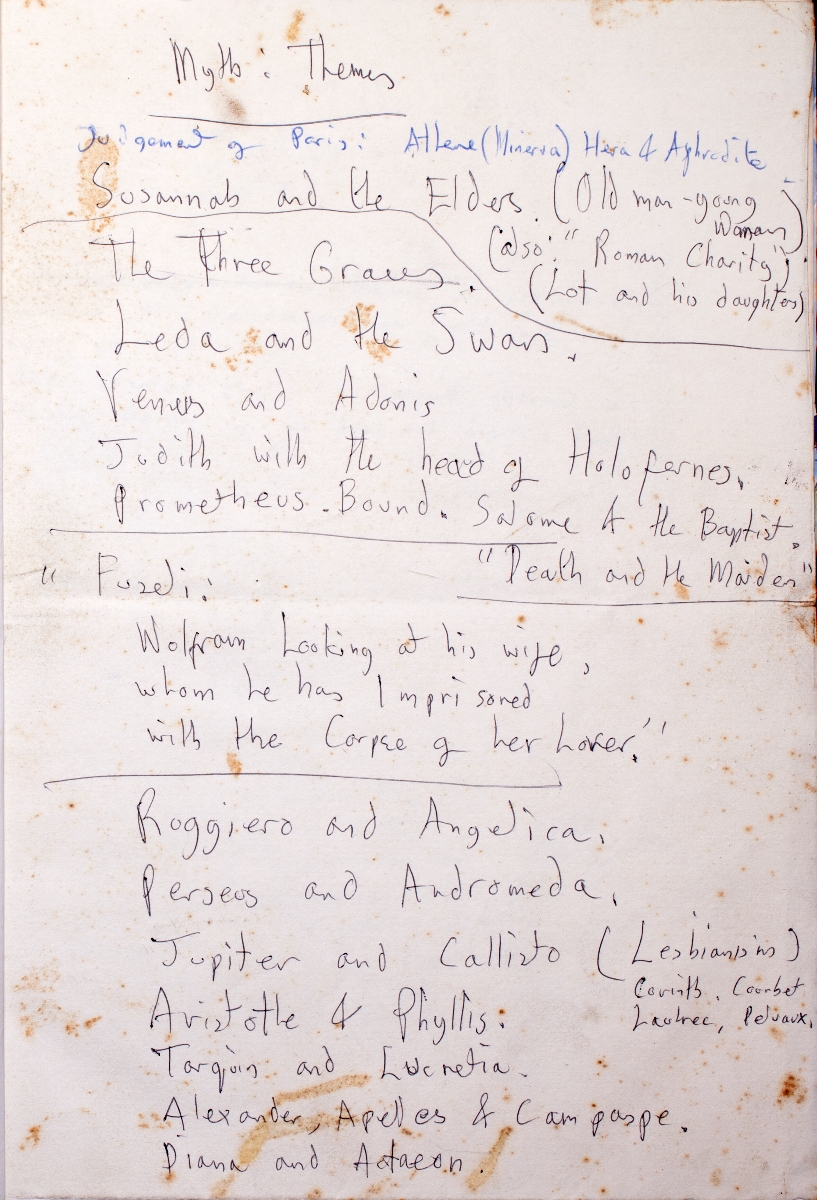 Myth: Themes
Judgement of Paris: Athene (Minerva) Hera & Aphrodite
Susannah and the Elders. (Old man-young Woman)
(also: "Roman Charity").
(Lot and his daughters)
The Three Graces.
Leda and the Swan.
Venus and Adonis
Judith with the head of Holofernes.
Prometheus Bound. Salome & the Baptist.
"Death and the Maiden"
"Fuseli:
Wolfram Looking at his wife,
whom he has Imprisoned
with the Corpse of her Lover."
Roggiero and Angelica.
Perseos and Andromeda.
Jupiter and Callisto (Lesbianism)
Corinth. Courbet
Lautrec, Delvaux.
Aristotle & Phyllis.
Tarquin and Lucretia.
Alexander, Apelles & Campaspe.
Diana and Actaeon.